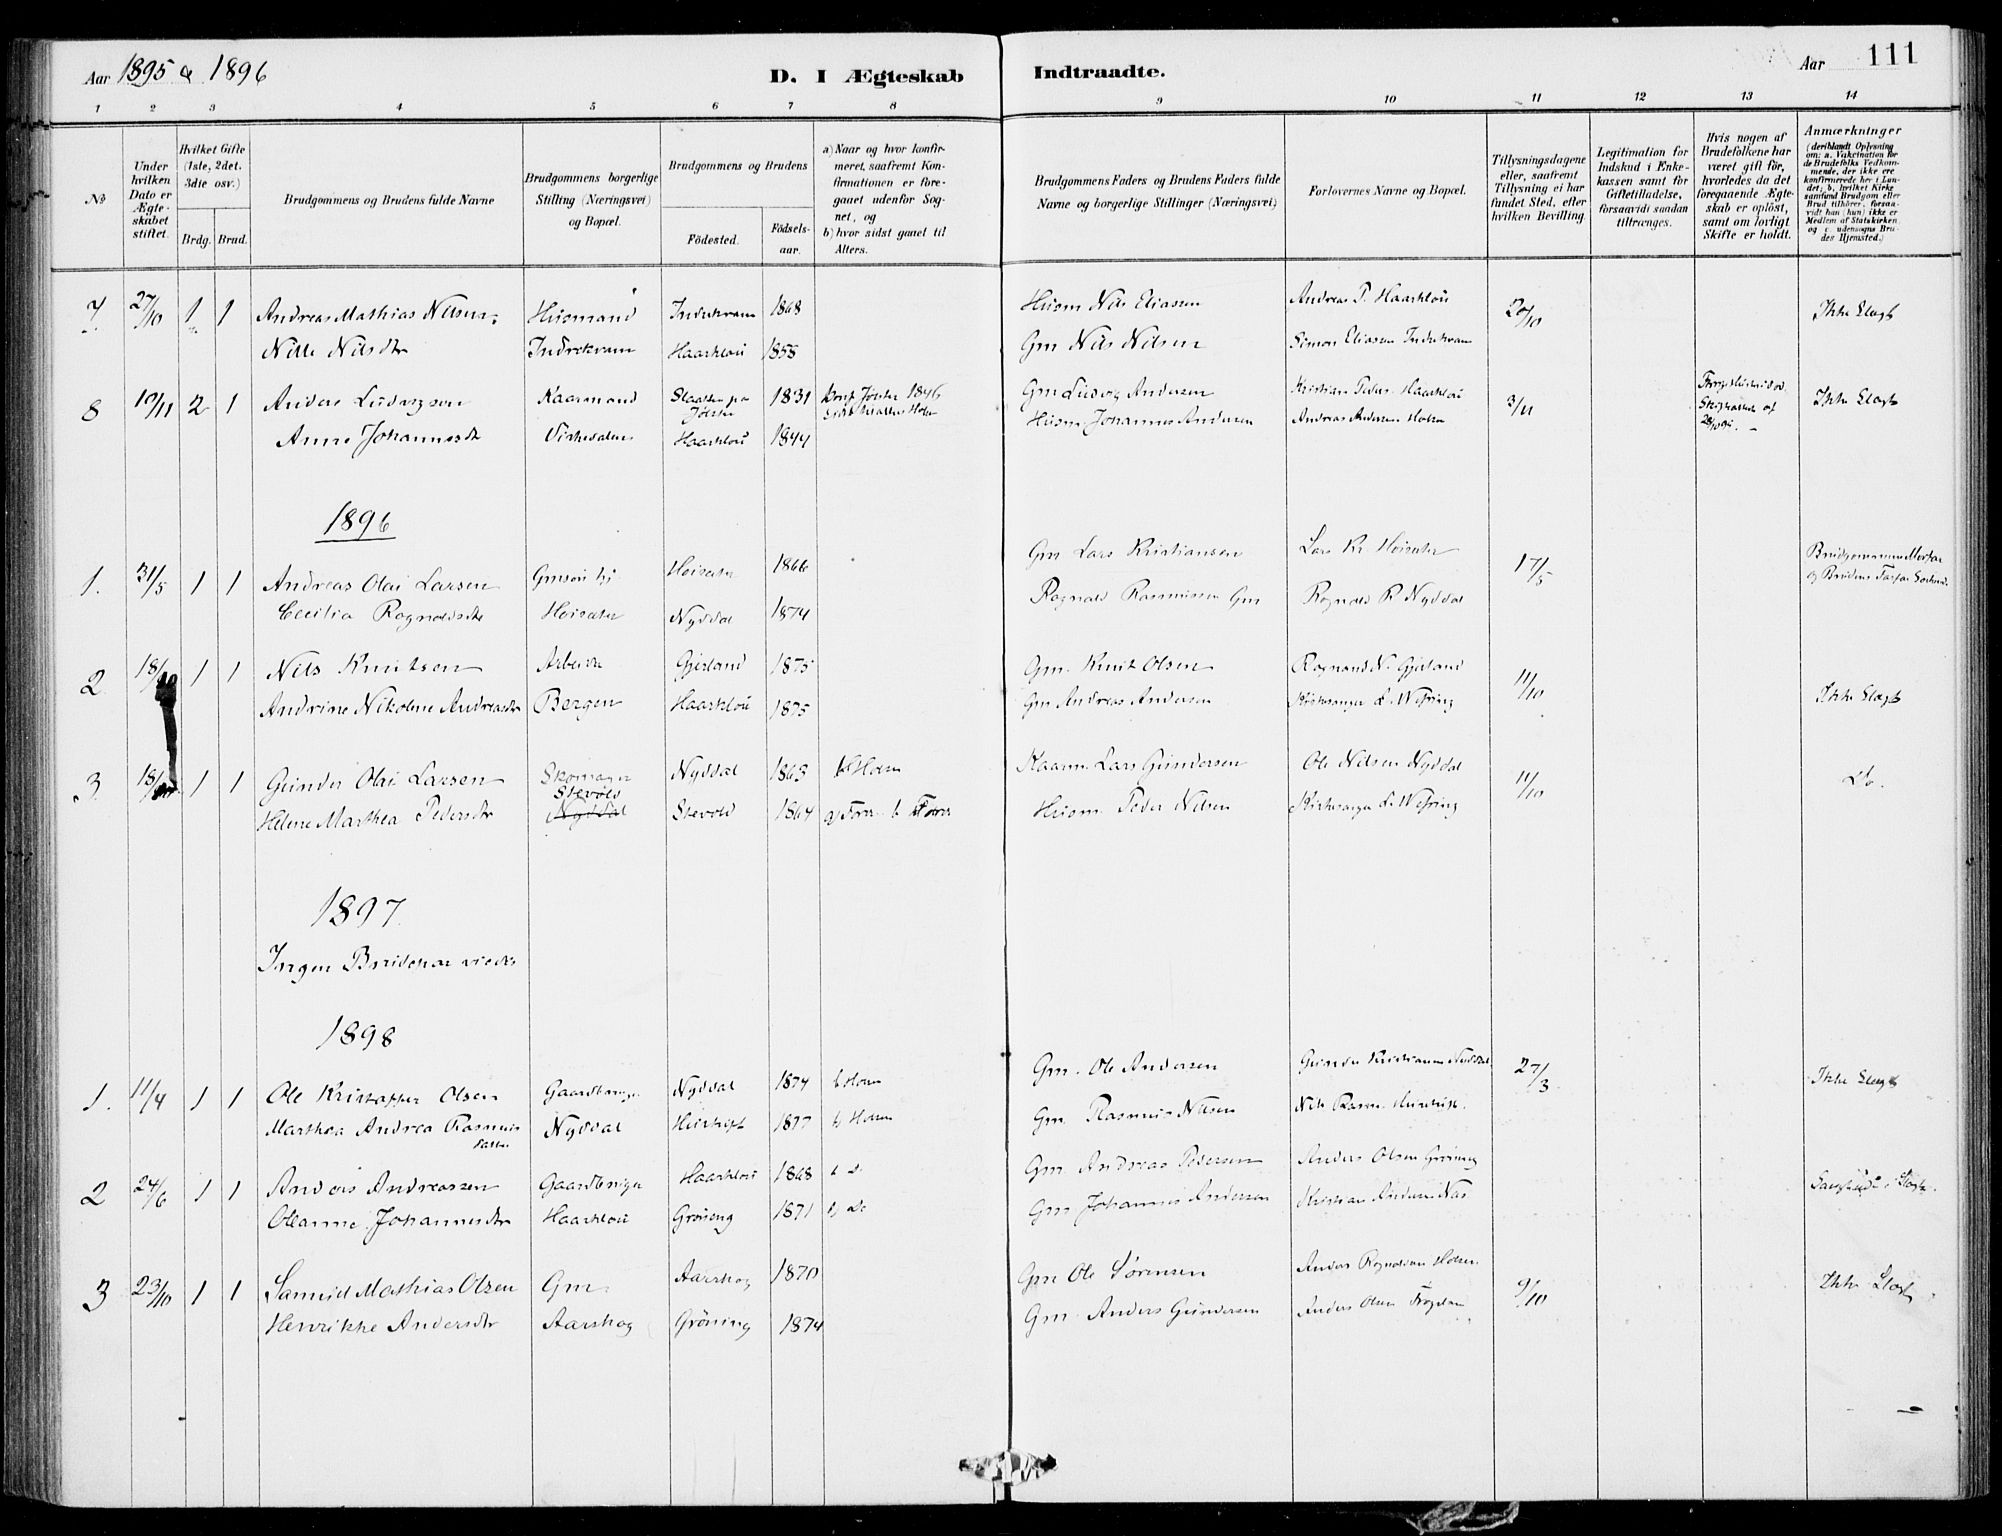 Aar 1895 & 1896
D. I Ægteskab Indtraadte.
Aar 111
1 2 3 4 5 6 7 8 9 10 11 12 13 14
No
Under hvilken Dato er Ægteskabet stiftet.
Hvilket Gifte (1ste, 2det, 3die osv.)
Brdg. Brud.
Brudgommens og Brudens fulde Navne
Brudgommens borgerlige Stilling (Næringsvei) og Bopæl.
Brudgommens og Brudens
Fødested.
Fødselsaar.
a) Naar og hvor konfirmeret, saafremt Konfirmationen er foregaaet udenfor Sognet, og
b) hvor sidst gaaet til Alters.
Brudgommens Faders og Brudens Faders fulde Navne og borgerlige Stillinger (Næringsvei)
Forlovernes Navne og Bopæl.
Tillysningsdagene eller, saafremt Tillysning ei har fundet Sted, efter hvilken Bevilling.
Legitimation for Indskud i Enkekassen samt for Giftetilladelse, forsaavidt saadan tiltrænges.
Hvis nogen af Brudefolkene har været gift før, hvorledes da det foregaaende Ægteskab er opløst, samt om lovligt Skifte er holdt.
Anmærkninger (deriblandt Oplysning om: a. Vakcination for de Brudefolks Vedkommende, der ikke ere konfirmerede her i Landet; b. hvilket Kirkesamfund Brudgom eller Brud tilhører, forsaavidt han (hun) ikke er Medlem af Statskirken, og c. udensogns Brudes Hjemsted.)
7 27/10 1 1 Andreas Mathias Nilsen Husmand Indrekvam 1868 Husm Nils Eliassen Andreas P. Haarklou 20/10 Ikke Slægt
Nille Nilsdtr Indrekvam Haarklou 1858 Gm Nils Nilsen Simon Eliasen Indrekvam
8 10/11 2 1 Anders Ludvigsen Kaarmand Jølster 1831 Konf Jølster 1846 Gm Ludvig Andersen Kristian Peders. Haarklou 3/11 Ikke Slægt
Anne Johannesdt Virkesalen Haarklou 1844 Husm Johannes Andersen Andreas Andersen Holsen
1896
1. 31/5 1 1 Andreas Olai Larsen Gmsøn Hoisæter 1866 Gm Lars Kristiansen Lars Kr. Hoisæter 17/5 Brudgommens Morfar
Cecilia Ragnaldsdtr Hoisæter Nyddal 1874 Ragnald Rasmussen Gm Ragnald R. Nyddal og Brudens Farfar
2 18/10 1 1 Nils Knutsen Arbeider Gjerland 1875 Gm. Knut Olsen Ragnand N. Gjerland 11/10 Ikke Slægt
Andrine Nikoline Andreasdtr Bergen Haarklou 1875 Gm Andreas Andersen Kirkesanger L. Wefring
3. 18/10 1 1 Gunder Olai Larsen Skomager Nyddal 1863 b Holsen Kaarm. Lars Gundersen Ole Nilsen Nyddal 11/10 Do.
Stevold
Helene Marthea Pedersdtr Nyddal Stevold 1864 a) Førde b Førde Husm. Peder Nilsen Kirkesanger L. Wefring
1897.
Ingen Brudepar viedes
1898
1. 11/4 1 1 Ole Kristoffer Olsen Gaardbruger Nyddal 1874 b Holsen Gm. Ole Andersen Gunder Kristiansen Nyddal 27/3 Ikke Slægt
Marthea Andrea Rasmus datter Nyddal 1877 b Holsen Gm. Rasmus Nilsen Nils Rasm.
2 24/6 1 1 Anders Andreassen Gaardbruger Haarklou 1868 b Do Gm. Andreas Pedersen Anders Olsen Grøning
Oleanne Johannesdtr Haarklou Grøning 1871 b Do Gm Johannes Andersen Kristian Andersen
3 23/10 1 1 Samuel Mathias Olsen Gm. Aarskog 1870 Gm Ole Sørensen Anders Ragnaldsen Holsen 9/10 Ikke Slægt
Henrikke Andersdtr Aarskog Grøning 1874 Gm. Anders Gundersen Anders Olsen